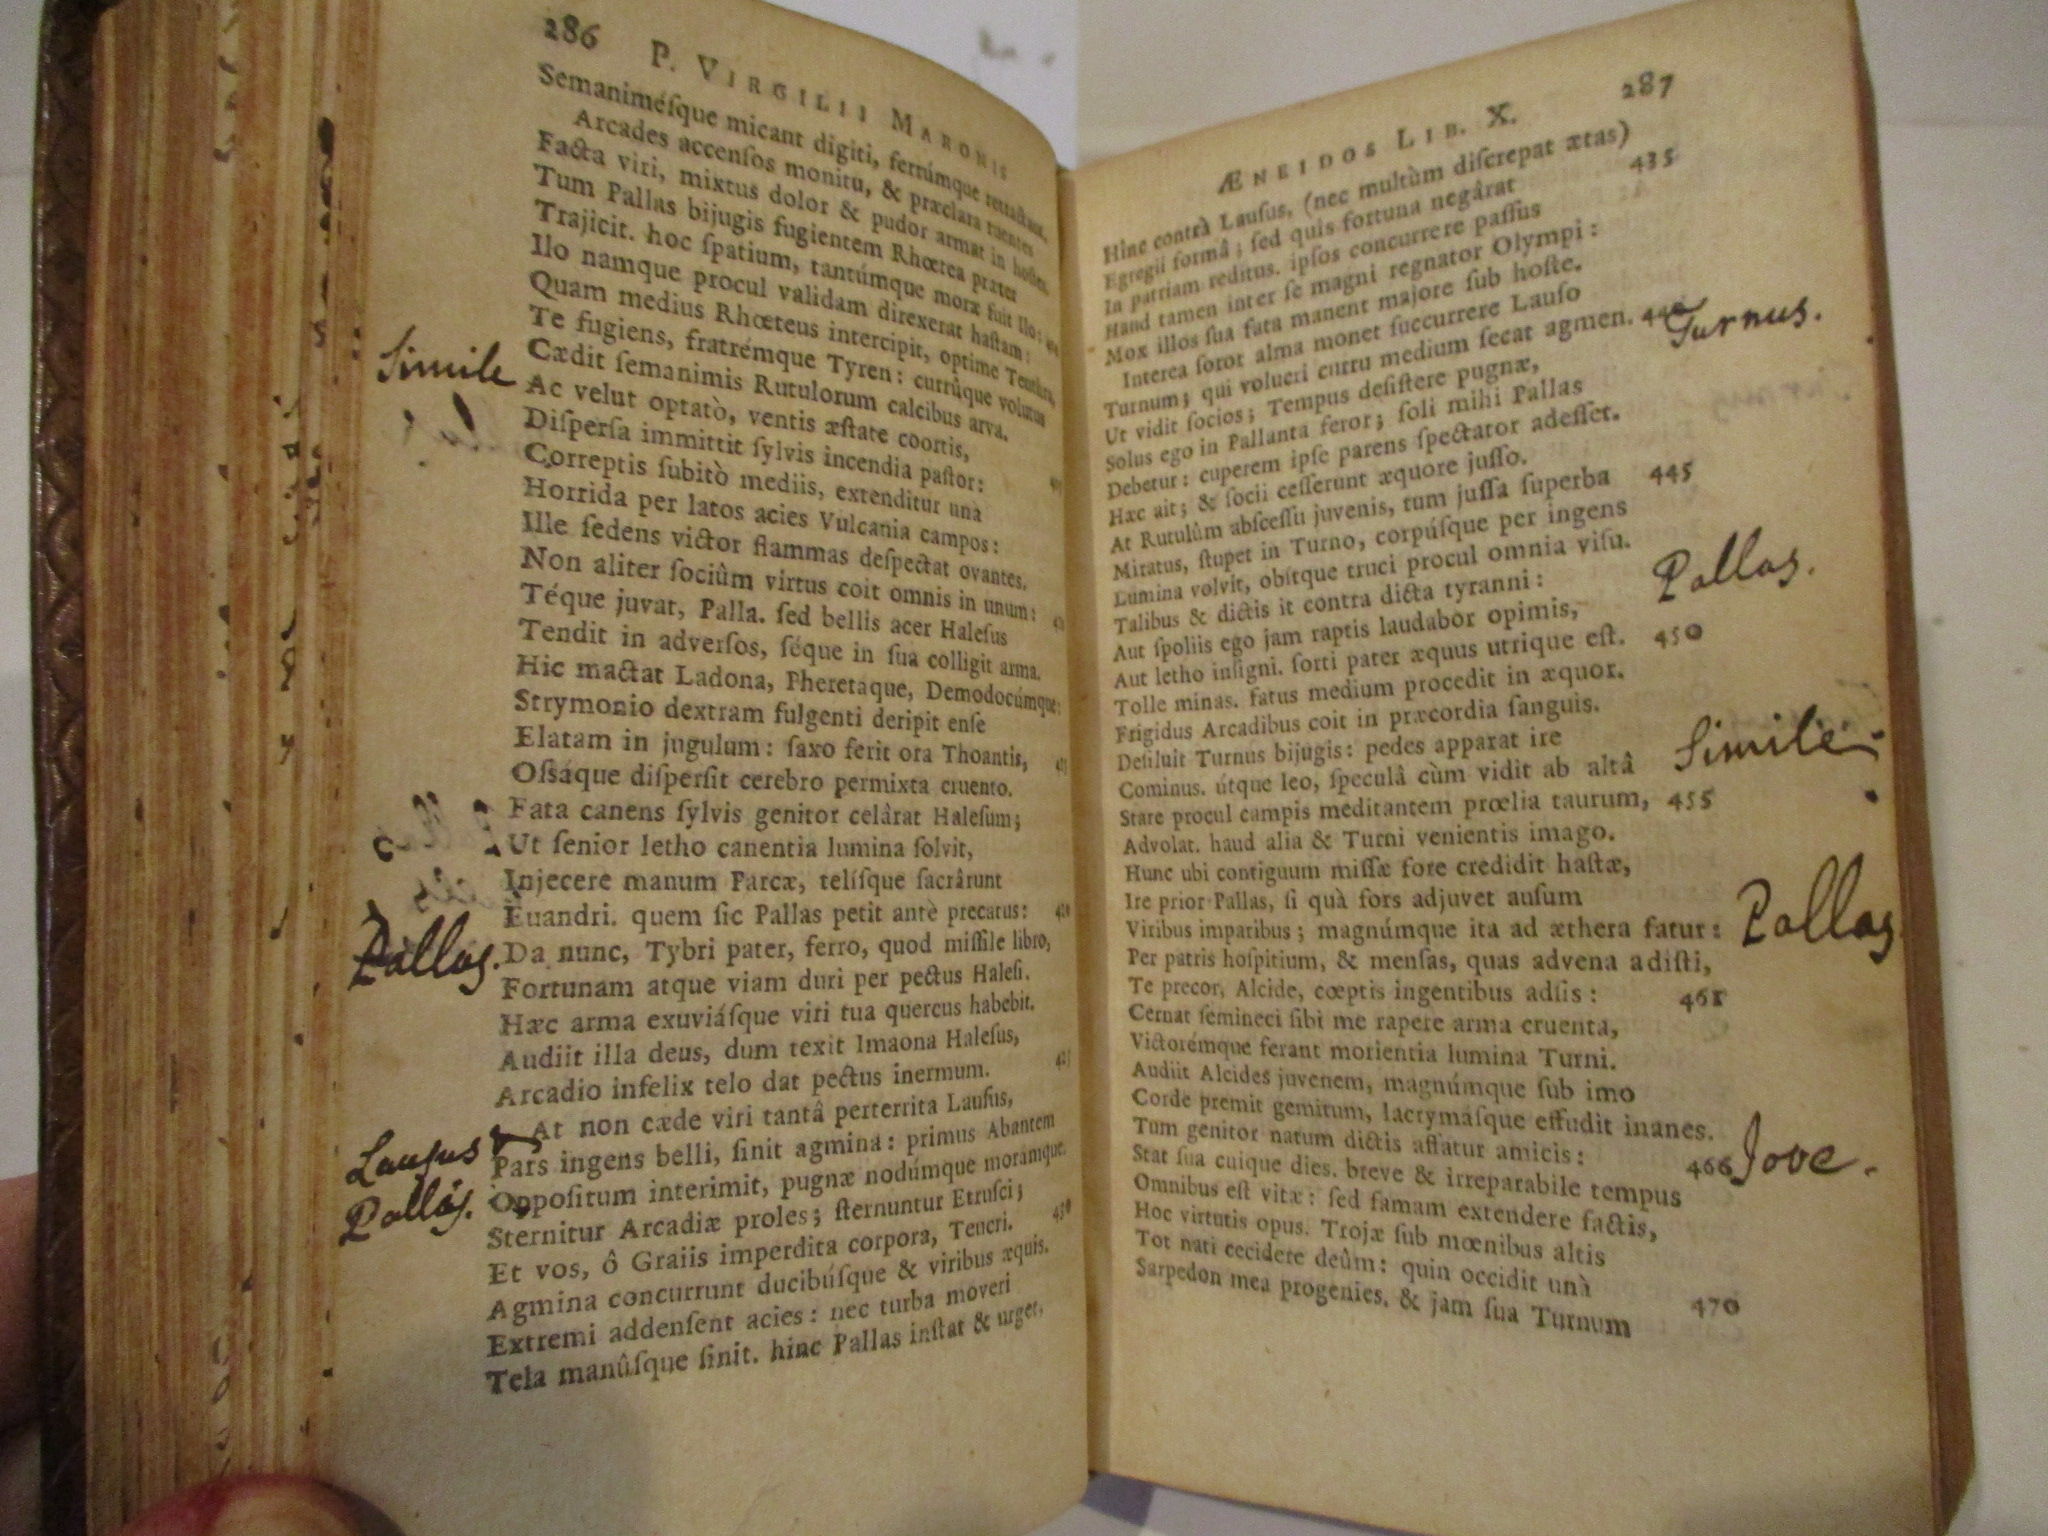 286 P. VIRGILII MARONIS
Semanimésque micant digiti, ferrúmque retractant.
Arcades accensos monitu, & præclara tuentes
Facta viri, mixtus dolor & pudor armat in hostes.
Tum Pallas bijugis fugientem Rhœtea præter
Trajicit. hoc spatium, tantúmque moræ fuit Ilo:
Ilo namque procul validam direxerat hastam:
Quam medius Rhœteus intercipit, optime Teuthra,
Te fugiens, fratrémque Tyren: currûque volutus
Cædit semanimis Rutulorum calcibus arva.
Simile
Ac velut optatò, ventis æstate coortis,
Dispersa immittit sylvis incendia pastor:
Correptis subitò mediis, extenditur unà
Horrida per latos acies Vulcania campos:
Ille sedens victor flammas despectat ovantes.
Non aliter sociûm virtus coit omnis in unum:
Téque juvat, Palla. sed bellis acer Halesus
Tendit in adversos, séque in sua colligit arma.
Hic mactat Ladona, Pheretaque, Demodocúmque:
Strymonio dextram fulgenti deripit ense
Elatam in jugulum: saxo ferit ora Thoantis,
Ossáque dispersit cerebro permixta cruento.
Fata canens sylvis genitor celârat Halesum;
Ut senior letho canentia lumina solvit,
Injecere manum Parcæ, telísque sacrârunt
Euandri. quem sic Pallas petit antè precatus:
Pallas.
Da nunc, Tybri pater, ferro, quod missile libro,
Fortunam atque viam duri per pectus Halesi.
Hæc arma exuviásque viri tua quercus habebit.
Audiit illa deus, dum texit Imaona Halesus,
Arcadio infelix telo dat pectus inermum.
At non cæde viri tantâ perterrita Lausus,
Lausus
Pars ingens belli, sinit agmina: primus Abantem
Oppositum interimit, pugnæ nodúmque morámque.
Pallas.
Sternitur Arcadiæ proles; sternuntur Etrusci;
Et vos, ô Graiis imperdita corpora, Teucri.
Agmina concurrunt ducibúsque & viribus æquis.
Extremi addensent acies: nec turba moveri
Tela manûsque sinit. hinc Pallas instat & urget,
ÆNEIDOS LIB. X. 287
Hinc contrà Lausus, (nec multùm discrepat ætas)
Egregii formâ; sed quis fortuna negârat 435
In patriam reditus. ipsos concurrere passus
Haud tamen inter se magni regnator Olympi:
Mox illos sua fata manent majore sub hoste.
Interea soror alma monet succurrere Lauso
Turnum; qui volucri curru medium secat agmen. 440 Turnus.
Ut vidit socios; Tempus desistere pugnæ,
Solus ego in Pallanta feror; soli mihi Pallas
Debetur: cuperem ipse parens spectator adesset.
Hæc ait; & socii cesserunt æquore jusso.
At Rutulûm abscessu juvenis, tum jussa superba 445
Miratus, stupet in Turno, corpúsque per ingens
Lumina volvit, obítque truci procul omnia visu.
Talibus & dictis it contra dicta tyranni:
Pallas.
Aut spoliis ego jam raptis laudabor opimis,
Aut letho insigni. sorti pater æquus utrique est. 450
Tolle minas. fatus medium procedit in æquor.
Frigidus Arcadibus coit in præcordia sanguis.
Desiluit Turnus bijugis: pedes apparat ire
Cominus. útque leo, speculâ cùm vidit ab altâ
Simile
Stare procul campis meditantem prœlia taurum, 455
Advolat. haud alia & Turni venientis imago.
Hunc ubi contiguum missæ fore credidit hastæ,
Ire prior Pallas, si quà fors adjuvet ausum
Viribus imparibus; magnúmque ita ad æthera fatur:
Pallas
Per patris hospitium, & mensas, quas advena adisti,
Te precor, Alcide, cœptis ingentibus adsis: 461
Cernat semineci sibi me rapere arma cruenta,
Victorémque ferant morientia lumina Turni.
Audiit Alcides juvenem, magnúmque sub imo
Corde premit gemitum, lacrymásque effudit inanes.
Tum genitor natum dictis affatur amicis: 466 Jove.
Stat sua cuique dies. breve & irreparabile tempus
Omnibus est vitæ: sed famam extendere factis,
Hoc virtutis opus. Trojæ sub mœnibus altis
Tot nati cecidere deûm: quin occidit unà 470
Sarpedon mea progenies. & jam sua Turnum